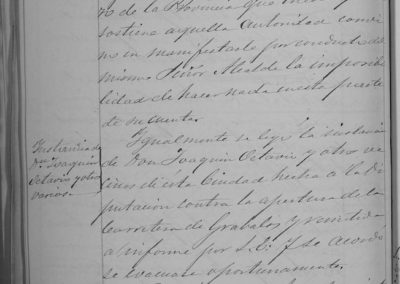 ro de la Provincia que
sostiene aquella Autoridad convi-
no en manifestarlo por conducto del
mismo Señor Alcalde la imposibi-
lidad de hacer nada en esta parte
de su cuenta.
Instancia de
Dn. Joaquin
Octavio y otros
varios
Igualmente se leyó la instancia
de Don Joaquin Octavio y otros ve-
cinos de esta Ciudad hecha a la Di-
putacion contra la apertura de la
Carretera de Grabalos y remitida
a informe por S.S. y se acordó
se evacuase oportunamente.